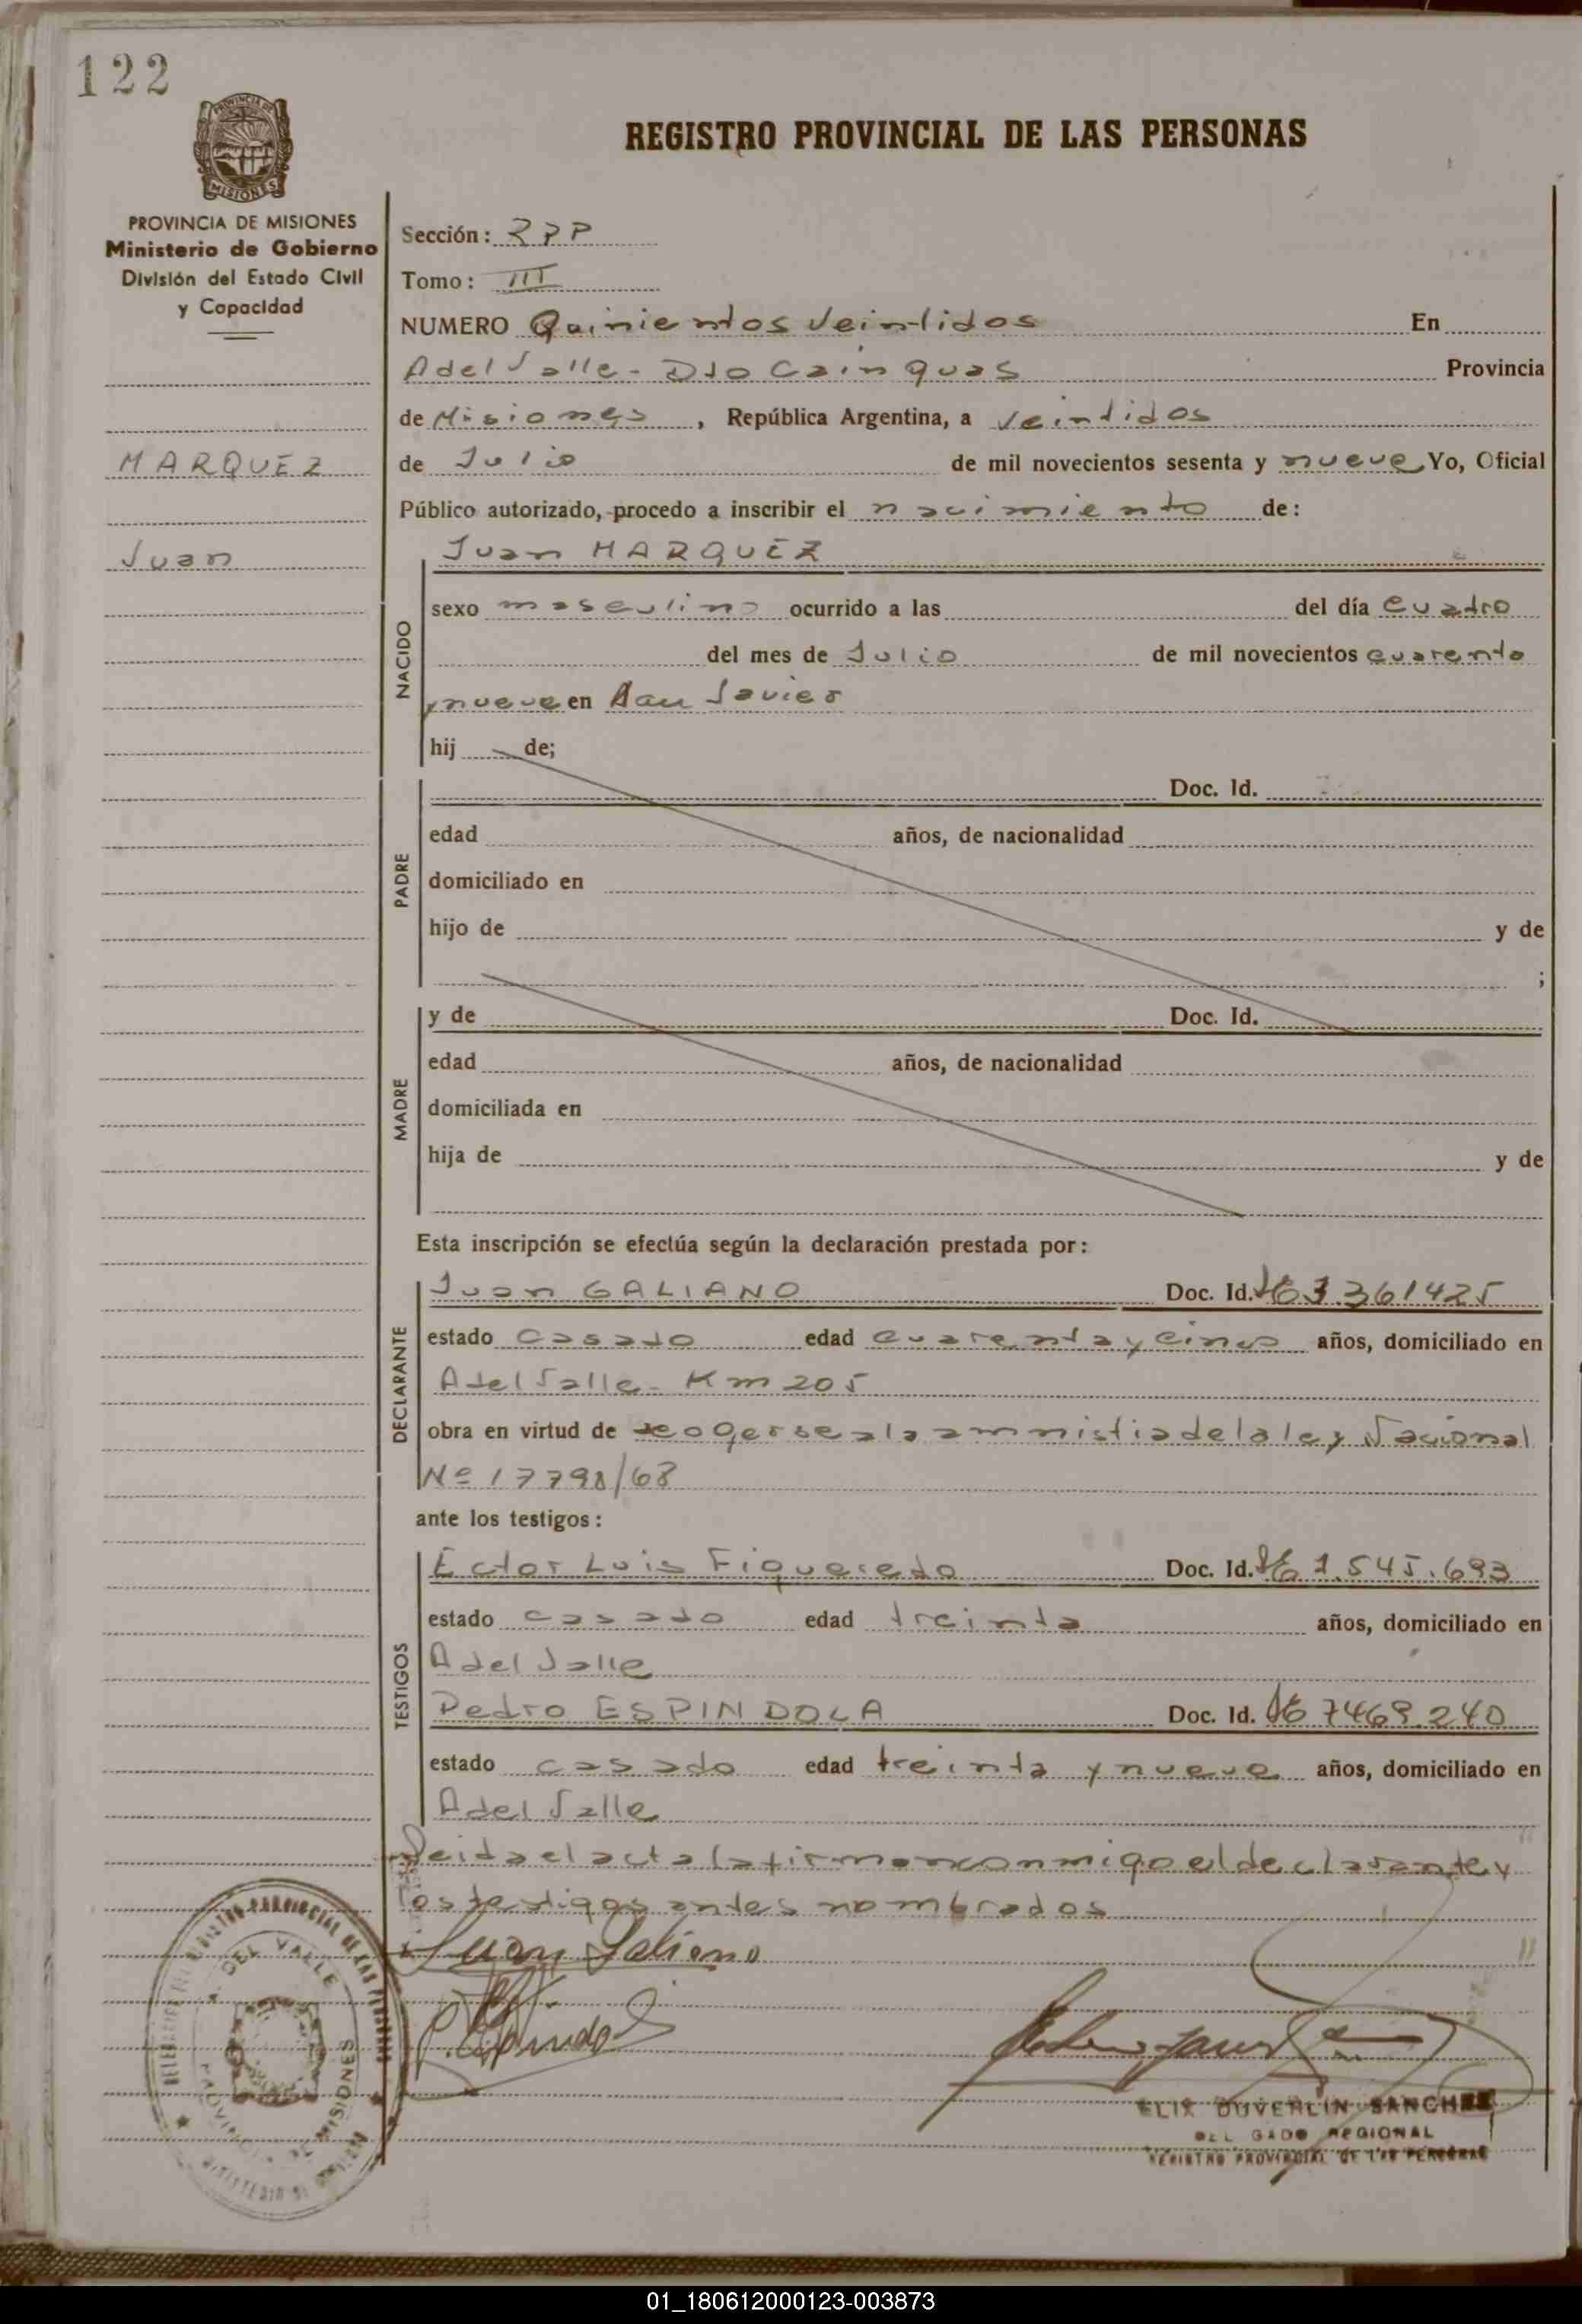 122
REGISTRO PROVINCIAL DE LAS PERSONAS
PROVINCIA DE MISIONES
Ministerio de Gobierno
División del Estado Civil
y Capacidad
MARQUEZ
Juan
Sección: RPP
Tomo: III
NUMERO Quinientos Veintidos En
A del Valle - Dto Cainguas Provincia
de Misiones, República Argentina, a Veintidos
de Julio de mil novecientos sesenta y nueve Yo, Oficial
Público autorizado, procedo a inscribir el nacimiento de:
NACIDO
Juan MARQUEZ
sexo masculino ocurrido a las del día cuatro
del mes de Julio de mil novecientos cuarenta
y nueve en San Javier
hij de;
PADRE
Doc. Id.
edad años, de nacionalidad
domiciliado en
hijo de y de
;
MADRE
y de Doc. Id.
edad años, de nacionalidad
domiciliada en
hija de y de
Esta inscripción se efectúa según la declaración prestada por:
DECLARANTE
Juan GALIANO Doc. Id. 3361425
estado casado edad cuarenta y cinco años, domiciliado en
A del Valle - Km 205
obra en virtud de acogerse a la amnistia de la ley Nacional
Nº 17798/68
ante los testigos:
TESTIGOS
Ector Luis Figueredo Doc. Id. 1.545.693
estado casado edad treinta años, domiciliado en
A del Valle
Pedro ESPINDOLA Doc. Id. 7469.240
estado casado edad treinta y nueve años, domiciliado en
A del Valle
Leida el acta la firman conmigo el declarante y
los testigos antes nombrados
Juan Galiano
P. Espindola
DEL VALLE
PROVINCIA DE MISIONES
ELIX DUVERLIN SANCHEZ
DELEGADO REGIONAL
REGISTRO PROVINCIAL DE LAS PERSONAS
01_180612000123-003873